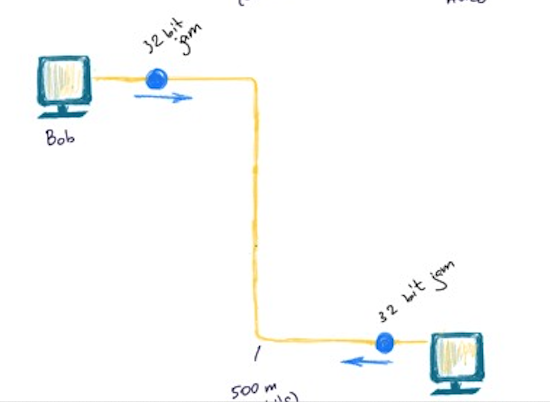 32 bit
jam
Bob
32 bit jam
500 m